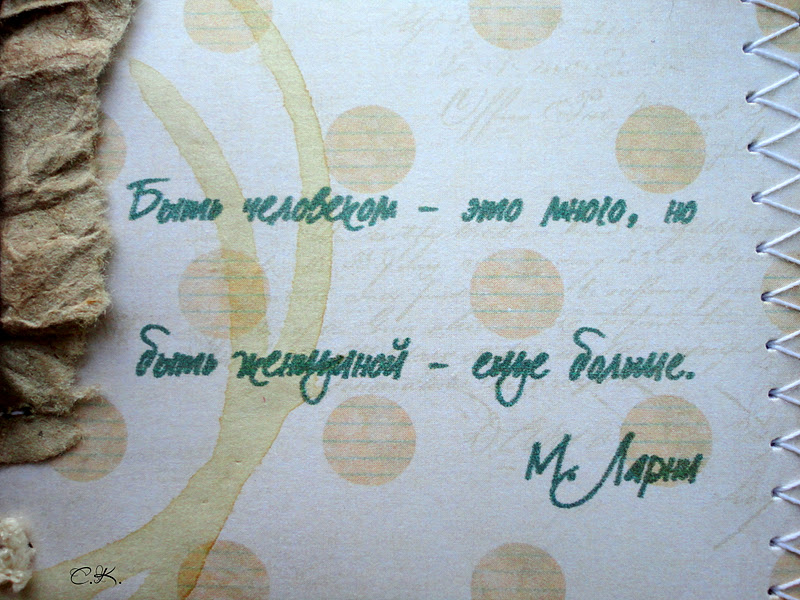 Быть человеком – это много, но
быть женщиной – еще больше.
М. Ларни
С.К.